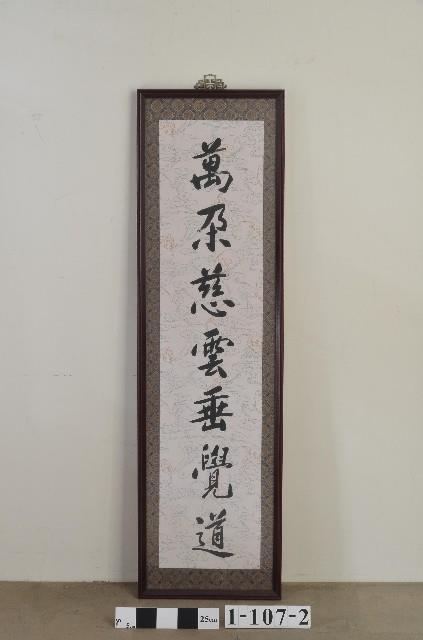 萬朶慈雲垂覺道
5cm
25cm
1-107-2